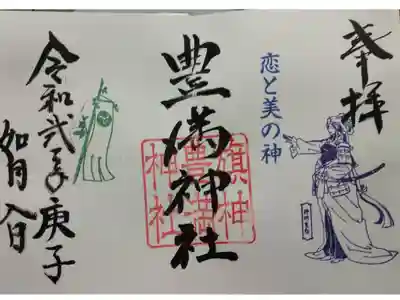 奉拝
恋と美の神
豊満神社
旗神
豊満
神社
令和弐年庚子
如月八日